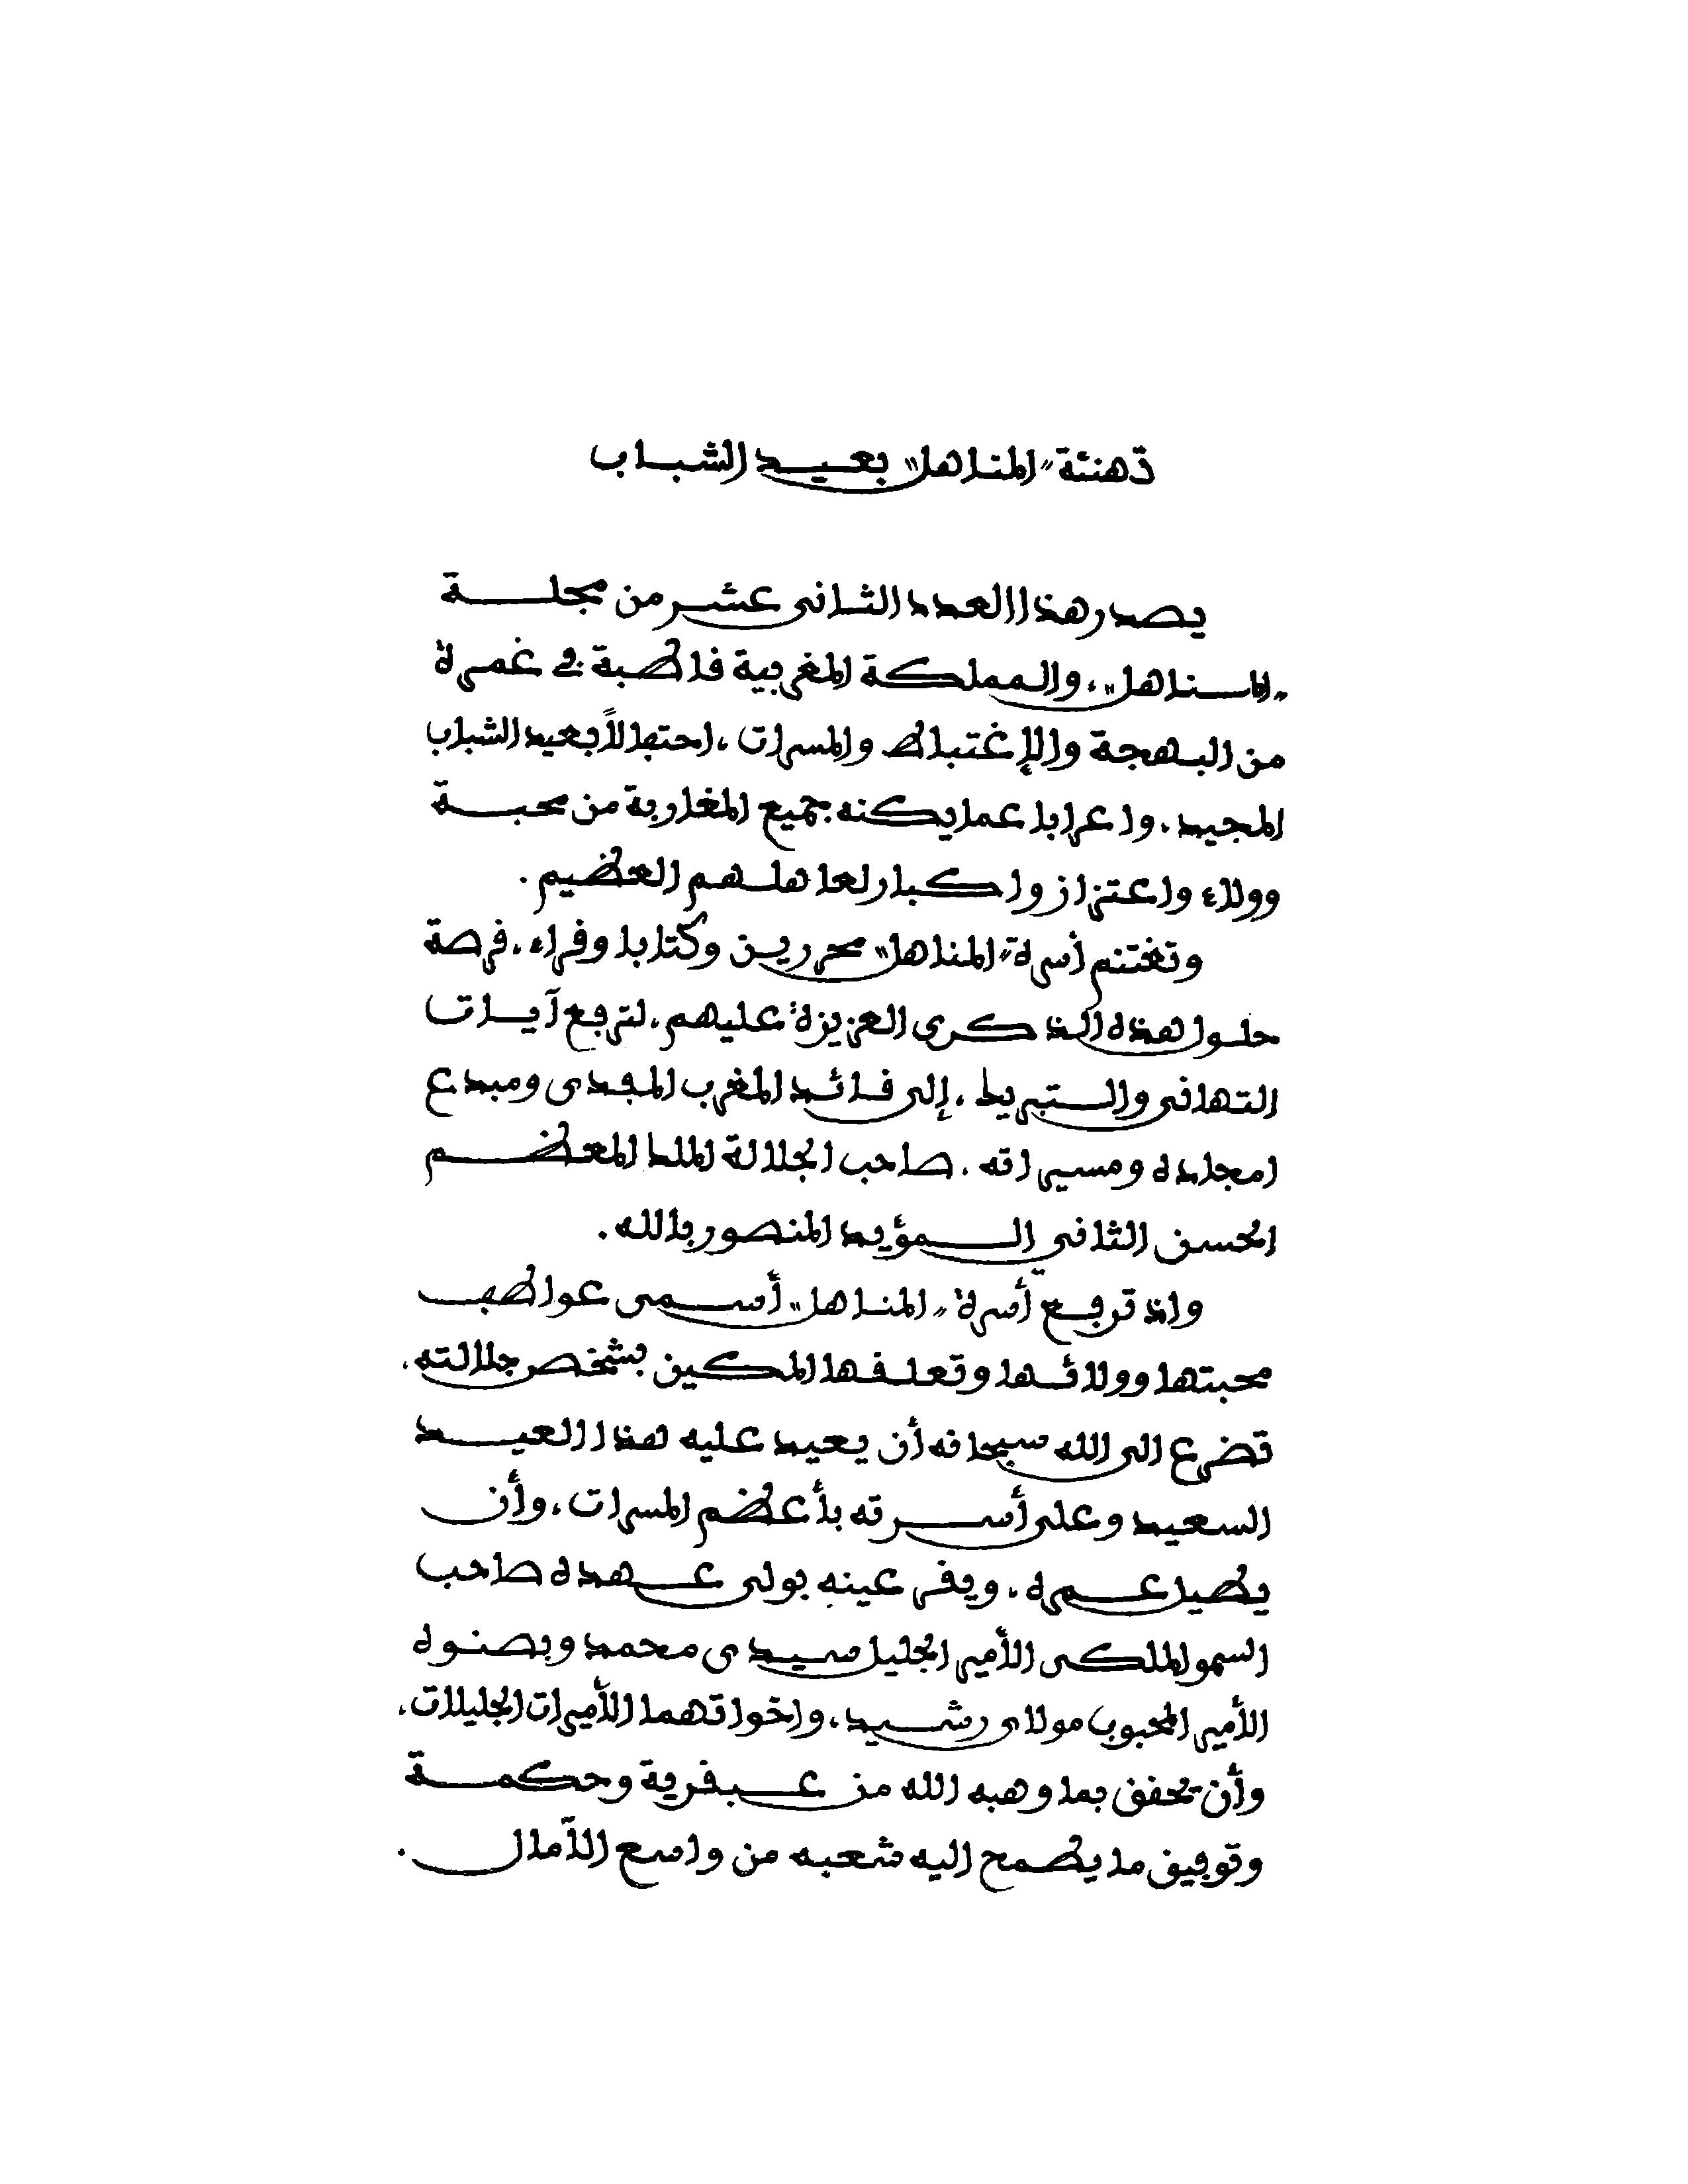 تهنئة "المناهل" بعيد الشباب
يصدر هذا العدد الثاني عشر من مجلة
"المناهل"، والمملكة المغربية قاطبة في غمرة
من البهجة والإغتباط والمسرات، احتفالاً بعيد الشباب
المجيد، واعرابا عما يكنه جميع المغاربة من محبة
وولاء واعتزاز واكبار لعاهلهم العظيم.
وتغتنم أسرة "المناهل" محررين وكتابا وقراء، فرصة
حلول هذه الذكرى العزيزة عليهم، لترفع آيات
التهاني والتبريك، إلى قائد المغرب المفدى ومبدع
امجاده ومسيراته، صاحب الجلالة الملك المعظم
الحسن الثاني المؤيد المنصور بالله.
واذ ترفع أسرة "المناهل" أسمى عواطف
محبتها وولائها وتعلقها المكين بشخص جلالته،
تضرع الى الله سبحانه أن يعيد عليه هذا العيد
السعيد وعلى أسرته بأعظم المسرات، وأن
يطيل عمره، ويقر عينه بولي عهده صاحب
السمو الملكي الأمير الجليل سيدي محمد وبصنوه
الأمير المحبوب مولاي رشيد، واخواتهما الأميرات الجليلات،
وأن يحقق بما وهبه الله من عبقرية وحكمة
وتوفيق ما يطمح اليه شعبه من واسع الآمال.